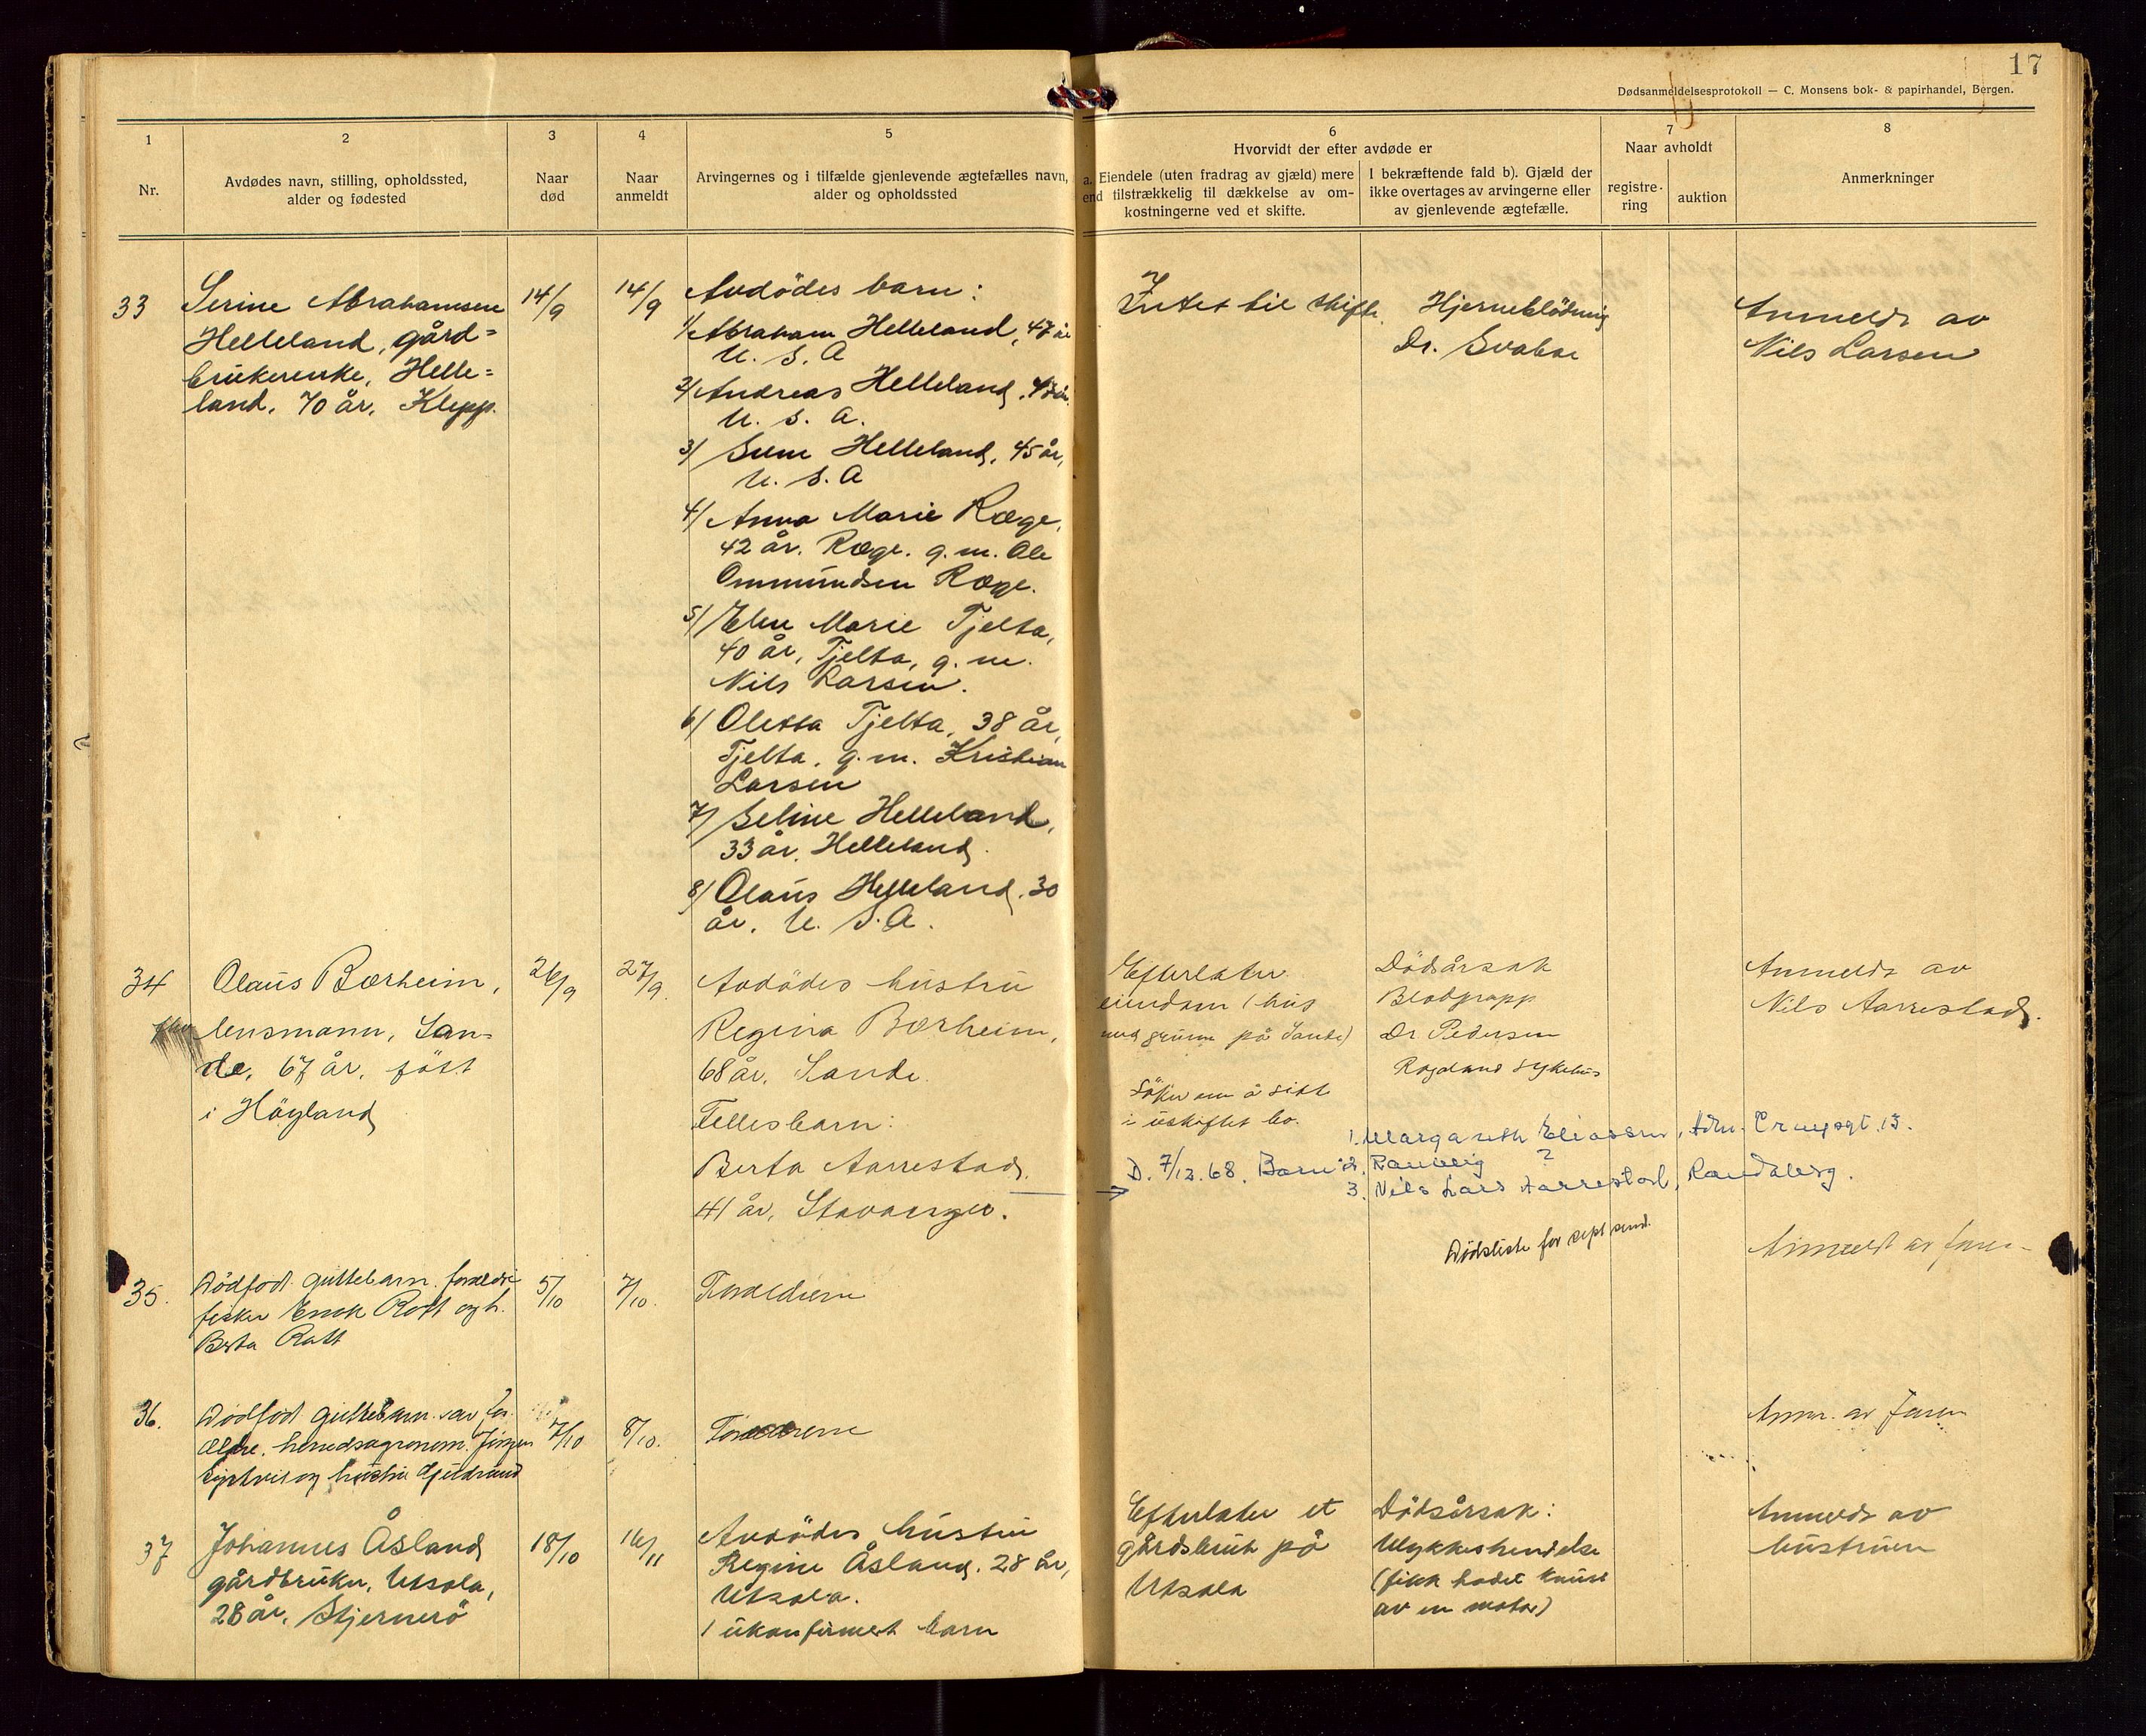 17
Dødsanmeldelsesprotokoll — C. Monsens bok- & papirhandel, Bergen.
1
Nr.
2
Avdødes navn, stilling, opholdssted,
alder og fødested
3
Naar
død
4
Naar
anmeldt
5
Arvingernes og i tilfælde gjenlevende ægtefælles navn,
alder og opholdssted
6
Hvorvidt der efter avdøde er
a. Eiendele (uten fradrag av gjæld) mere
end tilstrækkelig til dækkelse av om-
kostningerne ved et skifte.
I bekræftende fald b). Gjæld der
ikke overtages av arvingerne eller
av gjenlevende ægtefælle.
7
Naar avholdt
registre-
ring
auktion
8
Anmerkninger
33
Serine Abrahamsen
Helleland, gård=
brukerenke, Helle=
land. 70 år. Klepp.
14/9
14/9
Avdödes barn:
1/ Abraham Helleland, 47 år
U. S. A
2/ Andreas Helleland.
U. S. A.
3/ Helleland, 45 år,
U. S. A
4/ Anna Marie Ræge,
42 år. Ræge. g. m. Ole
Ommundsen Ræge.
5/ Elen Marie Tjelta,
40 år, Tjelta, g. m.
Nils Larsen.
6/ Oletta Tjelta, 38 år,
Tjelta, g. m. Kristian
Larsen
7/ Seline Helleland,
33 år. Helleland.
8/ Olaus Helleland. 30
år. U. S. A.
Intet til skifte.
Hjerneblödning
Dr. Svaboe
Anmeldt av
Nils Larsen
34
Olaus Bærheim,
lensmann, San-
de, 67 år, födt
i Höyland
26/9
27/9.
Avdödes hustru
Regina Bærheim,
68 år, Sande.
Fellesbarn:
Berta Aarrestad,
41 år, Stavanger.
Efterlater
eiendom (hus
med grunn på Sande)
Söker om å sitte
i uskiftet bo.
Dödsårsak
Blodpropp
Dr Pedersen
Rogaland sykehus
Anmeldt av
Nils Aarrestad.
1. Margareth Eliassen, 13.
D. 7/12.68. Barn: 2. Rannveig ?
3. Nils Lars Aarrestad, Randaberg.
Dödsliste for sept send.
35.
Dödfödt guttebarn. foreldre
fisker Enok Rott og h.
Berta Rott
5/10
7/10.
Foreldrene
Anmeldt av faren
36.
Dödfödt guttebarn av for-
eldre. herredsagronom.
og hustru Gjertrud
7/10
8/10.
Foreldrene
Anm. av faren
37
Johannes Åsland
gårdbruker, Utsola,
28 år. Stjernerö
18/10
16/11
Avdödes hustru
Regine Åsland. 28 år,
Utsola.
1 ukonfirmert barn
Efterlater et
gårdsbruk på
Utsola
Dödsårsak:
Ulykkeshendelse
(fikk hodet knust
av en motor)
Anmeldt av
hustruen